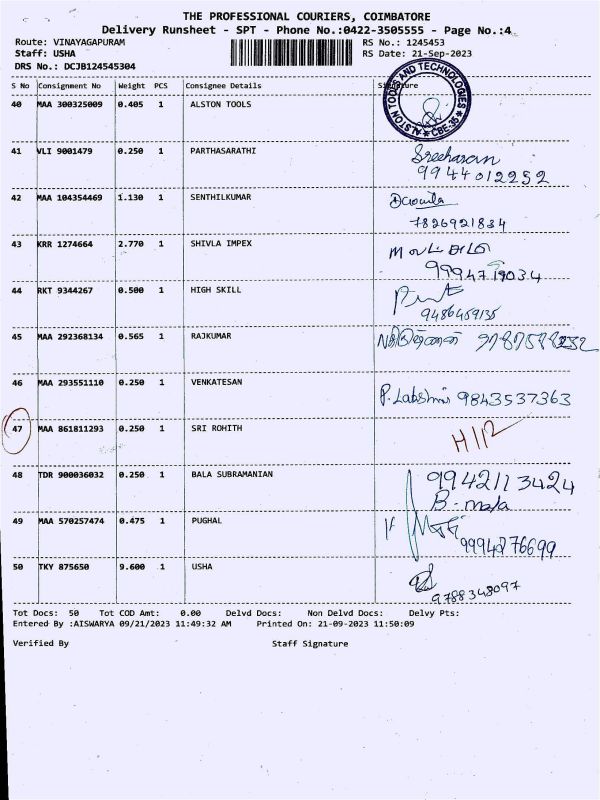 THE PROFESSIONAL COURIERS, COIMBATORE
Delivery Runsheet - SPT - Phone No.:0422-3505555 - Page No.:4
Route: VINAYAGAPURAM RS No.: 1245453
Staff: USHA RS Date: 21-Sep-2023
DRS No.: DCJB124545304
S No Consignment No Weight PCS Consignee Details Signature
40 MAA 300325009 0.405 1 ALSTON TOOLS
ALSTON TOOLS AND TECHNOLOGIES ★ CBE-35 ★
41 VLI 9001479 0.250 1 PARTHASARATHI Sreeharan
9944012252
42 MAA 104354469 1.130 1 SENTHILKUMAR
7826921834
43 KRR 1274664 2.770 1 SHIVLA IMPEX
9994719034
44 RKT 9344267 0.500 1 HIGH SKILL
9486459135
45 MAA 292368134 0.565 1 RAJKUMAR
46 MAA 293551110 0.250 1 VENKATESAN P. Lakshmi 9843537363
47 MAA 861811293 0.250 1 SRI ROHITH
48 TDR 900036032 0.250 1 BALA SUBRAMANIAN 9942113424
B-mala
49 MAA 570257474 0.475 1 PUGHAL
9994276699
50 TKY 875650 9.600 1 USHA
9788348097
Tot Docs: 50 Tot COD Amt: 0.00 Delvd Docs: Non Delvd Docs: Delvy Pts:
Entered By :AISWARYA 09/21/2023 11:49:32 AM Printed On: 21-09-2023 11:50:09
Verified By Staff Signature